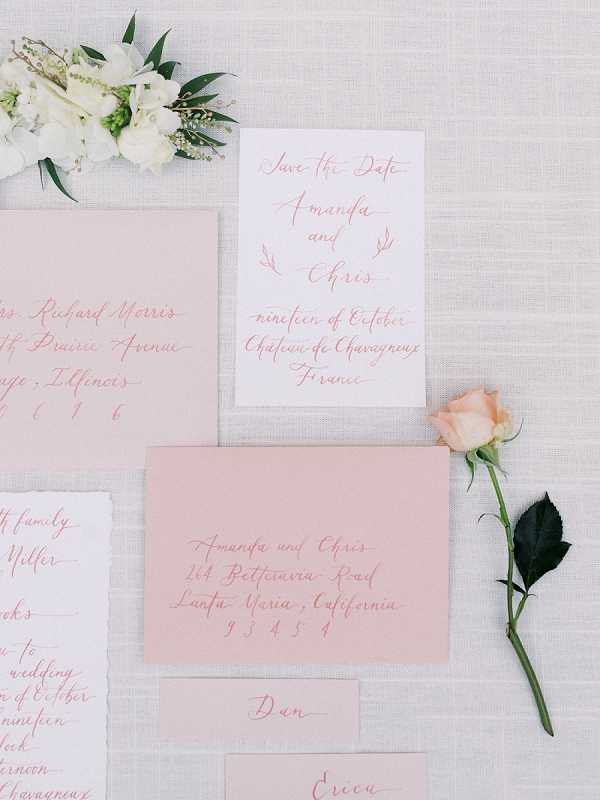 Save the Date
Amanda
and
Chris
nineteen of October
Château de Chavagneux
France
rs. Richard Morris
th Prairie Avenue
age, Illinois
6 1 6
Amanda and Chris
264 Betteravia Road
Santa Maria, California
9 3 4 5 4
th family
Miller
oks
u to
wedding
n of October
nineteen
lock
ernoon
Chavagneux
Dan
Erica